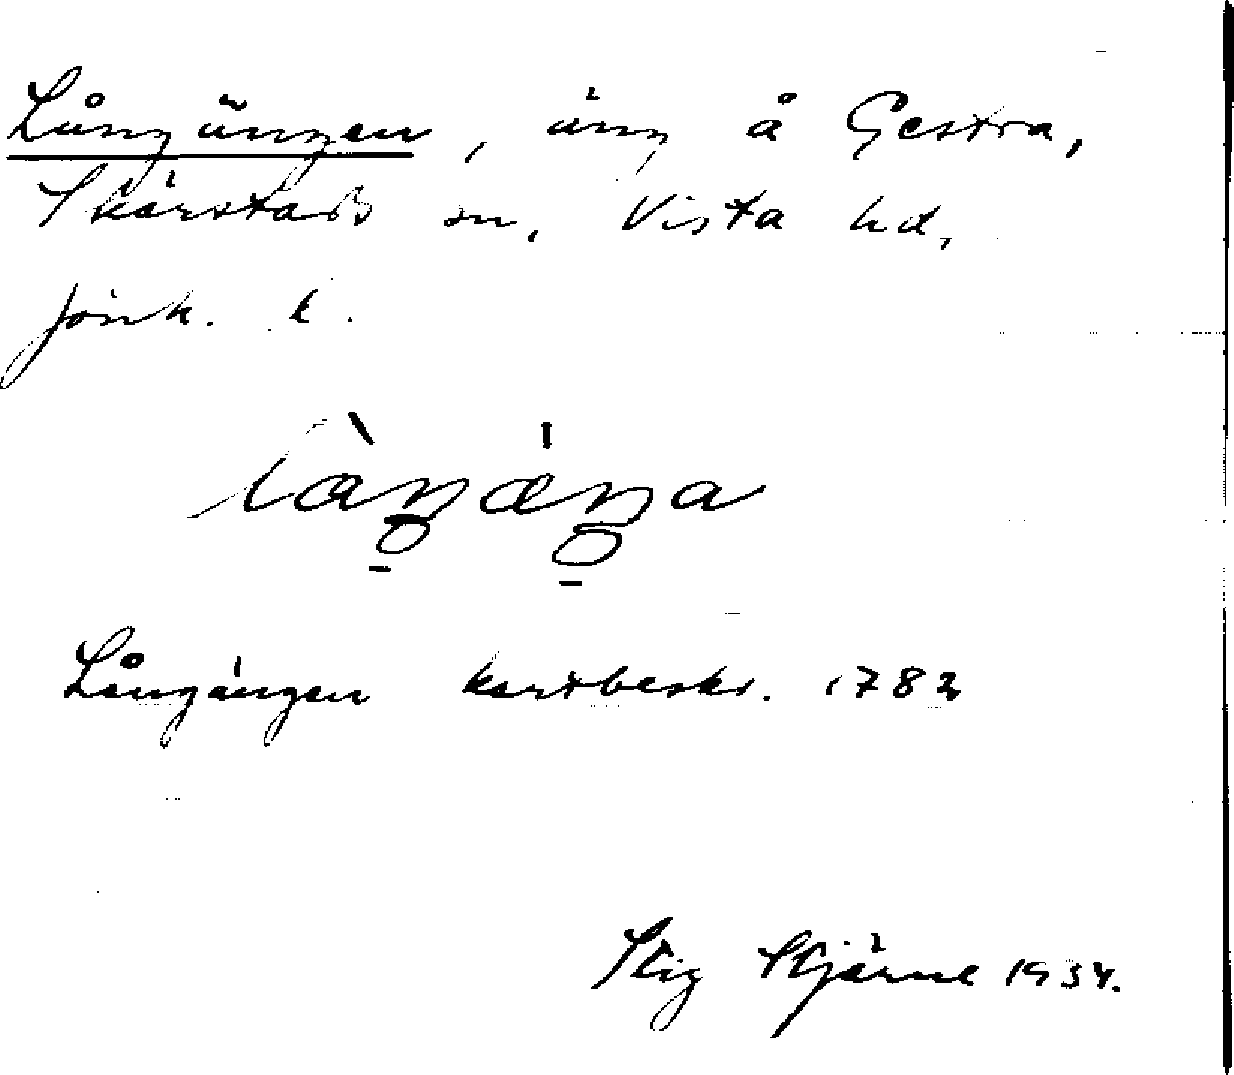 Långängen, äng å Gestra,
Skärstads sn, Vista hd,
Jönk. l.
làŋæ̀ŋa
Långängen kartbeskr. 1782
Stig Stjärne 1934.